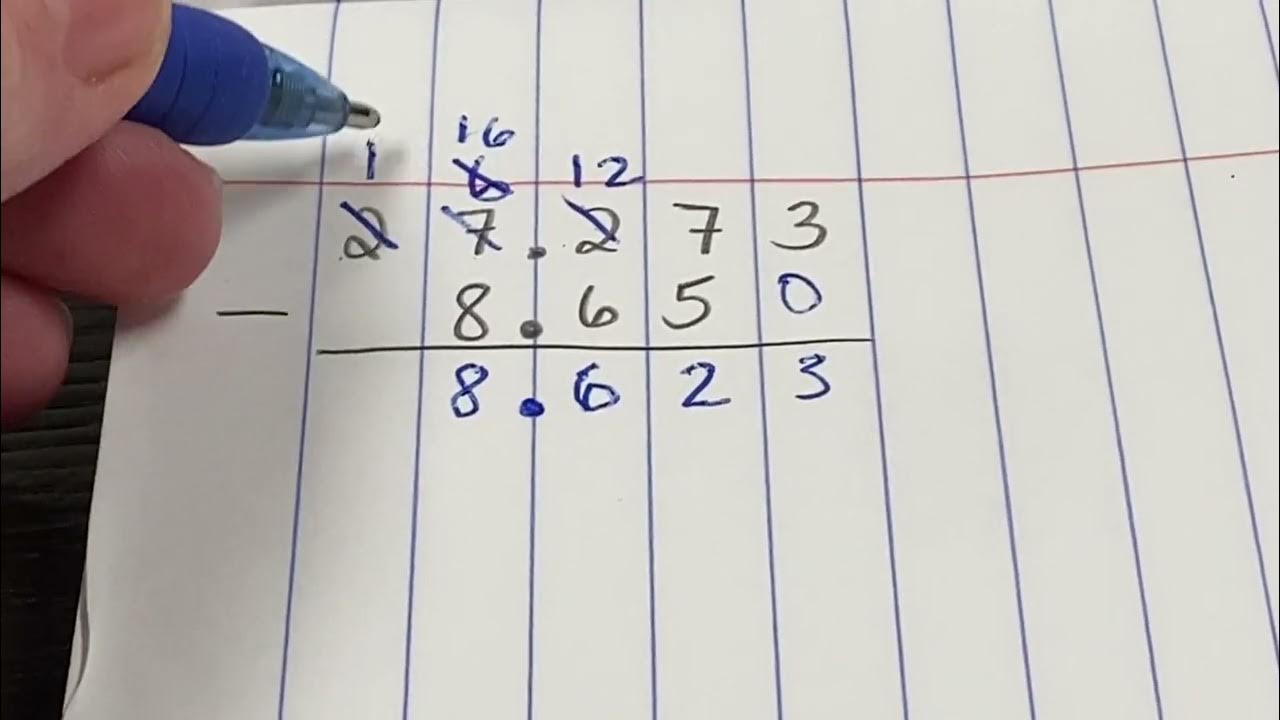 16
1 6 12
2 7 . 2 7 3
— 8 . 6 5 0
8 . 6 2 3